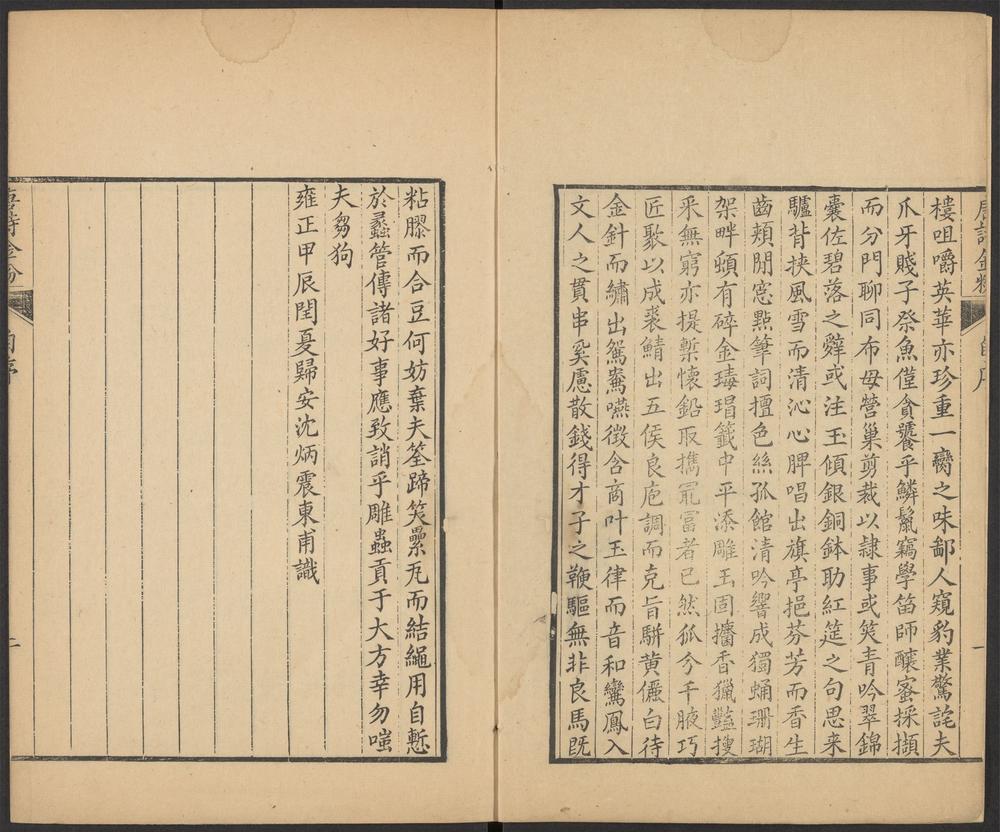 唐詩金粉
自序
一
樓咀嚼英華亦珍重一臠之味鄙人窺豹業驚詫夫
爪牙賤子祭魚僅貪饕乎鱗鬣竊學笛師釀蜜採擷
而分門聊同布母營巢剪裁以隷事或笑青吟翠錦
囊佐碧落之辭或注玉傾銀銅鉢助紅筵之句思来
驢背挾風雪而清沁心脾唱出旗亭挹芬芳而香生
齒頰閒窓點筆詞擅色絲孤館清吟響成獨蛹珊瑚
架畔頻有碎金瑇瑁籤中平添雕玉固擕香獵豔搜
采無窮亦提槧懷鉛取攜冣富者已然狐令千腋巧
匠聚以成裘鯖出五侯良庖調而克旨駢黄儷白待
金針而繡出鴛鴦嚥徴含商叶玉律而音和鸞鳳入
文人之貫串奚慮散錢得才子之鞭驅無非良馬旣
粘膠而合豆何妨棄夫筌蹄笑纍瓦而結繩用自慙
於蠡管傳諸好事應致誚乎雕蟲貢于大方幸勿嗤
夫芻狗
雍正甲辰閏夏歸安沈炳震東甫識
唐詩金粉
自序
二